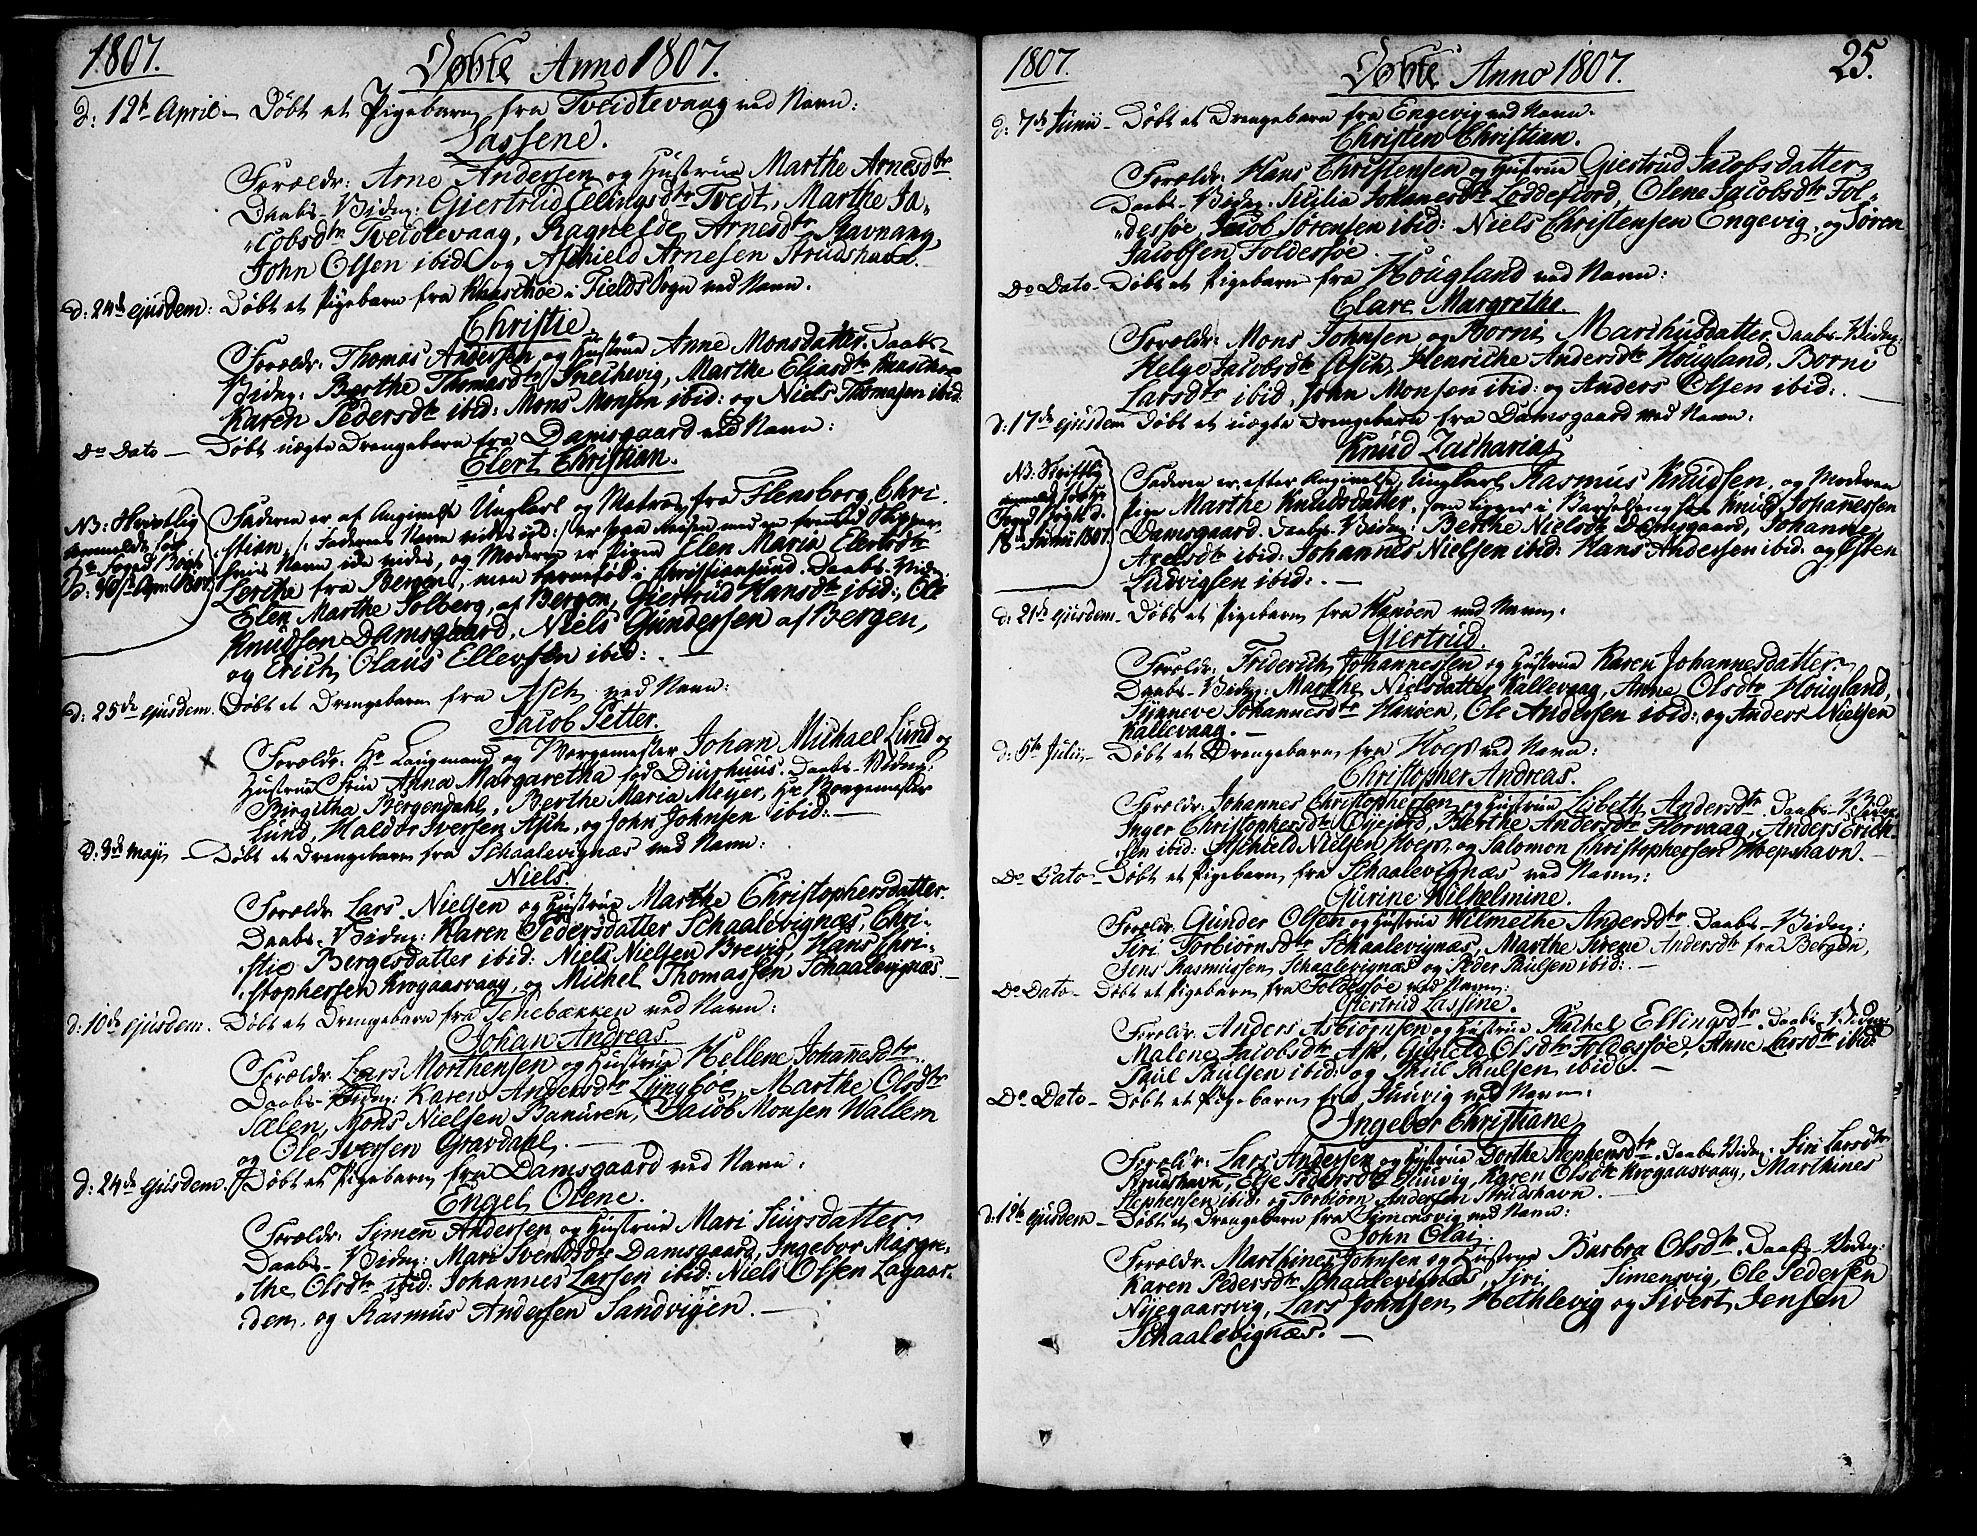 1807.
Döbte Anno 1807.
d: 12t April – Döbt et Pigebarn fra Tveidtevaag ved Navn:
Lassene.
Foreldr: Arne Andersen og Hustrue Marthe Arnesdtr
Daabs-Vidn: Giertrud Ellingsdtr Tvedt, Marthe Ja-
cobsdtr Tveidtevaag, Ragnelde Arnesdtr Ravnaag,
John Olsen ibid: og Aschield Arnesen Strudshavn.
d: 24de ejusdem: Döbt et Pigebarn fra i Fields Sogn ved Navn.
Christie.
Foreldr: Thomas Andersen og Hustrue Anne Monsdatter. Daabs-
Vidn: Berthe Thomasdtr Snechevig, Marthe Eliasdtr
Karen Pedersdtr ibid: Mons Monsen ibid: og Niels Thomasen ibid:
Do Dato – Döbt uægte Drengebarn fra Damsgaard ved Navn:
Elert Christian.
NB: Skriftlig
anmeldt for
Hr Foged Vogt
D: 30te Apr: 1807
Faderen er af Angivelse Ungkarl og Matros fra Flensborg, Chri-
stian, /: Faderens Navn vides ej :/ er
Navn ide vides, og Moderen er Pigen Elen Maria Elertsdtr
Lerche fra Bergen, men barnefød i Christiansund. Daabs-Vidn:
Elen Marthe Solberg, af Bergen, Giertrud Hansdtr ibid:, Ole
Knudsen Damsgaard, Niels Gundersen af Bergen,
og Erich Olaus Ellevsen ibid: –
d: 25de ejusdem. Döbt et Drengebarn fra Asch ved Navn:
Jacob Petter.
Foreldr: Hr Laugmand og Borgemester Johan Michael Lund og
Hustrue Frue Anna Margaretha fød Duushuus. Daabs-Vidn:
Birgitha Bergendahl, Berthe Maria Meyer, Hr Borgemester
Lund, Haldor Iversen Asch, og John Johnsen ibid: –
D: 3de Maji – Döbt et Drengebarn fra Schaalevignæs ved Navn:
Niels.
Foreldr: Lars Nielsen og Hustrue Marthe Christophersdatter.
Daabs-Vidn: Karen Pedersdatter Schaalevignæs, Chri-
stie Bergesdatter ibid: Niels Nielsen Brevig, Hans Chri-
stophersen Krogaasvaag, og Michel Thomassen Schaalevignæs. –
d: 10de ejusdem. Döbt et Drengebarn fra Schebæcken ved Navn:
Johan Andreas
Foreldr: Lars Morthensen og Hustrue Hellene Johannesdtr
Daabs-Vidn: Karen Andersdtr Lyngböe, Marthe Olsdtr
Sælen, Mons Nielsen Banuren, Jacob Monsen Wallem
og Ole Iversen Gravdahl. –
d: 24de ejusdem. Döbt et Pigebarn fra Damsgaard ved Navn:
Engel Olene.
Foreldr: Simen Andersen og Hustrue Mari Siursdatter.
Daabs-Vidn: Mari Svendsdtr Damsgaard, Ingebor Margre-
the Olsdtr ibid: Johannes Larsen ibid: Niels Olsen Lagaar-
den, og Rasmus Andersen Sandvigen. –
1807.
Döbte Anno 1807.
25.
d: 7de Junii – Döbt et Drengebarn fra Engevig ved Navn.
Christen Christian.
Foreldr: Hans Christensen og Hustrue Giertrud Jacobsdatter
Daabs-Vidn: Sicilia Johanesdtr Leddefiord, Olene Jacobsdtr Fol-
dessöe, Jacob Sörensen ibid: Niels Christensen Engevig, og Sören
Jacobsen Foldersöe.
Do Dato – Döbt et Pigebarn fra Hougland ved Navn:
Clare Margrethe.
Foreldr: Mons Johnsen og Borni Marthusdatter. Daabs-Vidn:
Helge Jacobsdtr Asch, Henriche Andersdtr Hougland, Borni
Larsdtr ibid, John Monsen ibid: og Anders Olsen ibid: –
d: 17de ejusdem Döbt et uægte Drengebarn fra Damsgaard ved Navn:
Knud Zacharias
NB: Skriftlig
anmeldt for Hr
Foged Vogt d:
18de Junii 1807.
Faderen er efter Angivelse Ungkarl Rasmus Knudsen, og Moderen
Pige Marthe Knudsdatter, som ligger i Barselseng hos Knud Johannessen
Damsgaard. Daabs-Vidn: Berthe Nielsdtr Damsgaard, Johanne
Axelsdtr ibid: Johannes Nielsen ibid: Hans Andersen ibid: og Osten
Ludvigsen ibid: –
d: 21de ejusdem – Döbt et Pigebarn fra Hanöen ved Navn:
Giertrud.
Foreldr: Friderich Johannessen og Hustrue Karen Johannesdatter.
Daabs-Vidn: Marthe Nielsdatter Kallevaag, Anne Olsdtr Hougland,
Synneve Johannesdtr Hanöen, Ole Andersen ibid: og Anders Nielsen
Kallevaag. –
d: 5te Julii – Döbt et Drengebarn fra Hoep ved Navn:
Christopher Andreas.
Foreldr: Johannes Christophersen og Hustrue Lisbeth Andersdtr. Daabs-Vidn:
Inger Christophersdtr Öyejord, Berthe Andersdtr Florvaag, Anders Erich-
sen ibid: Aschield Nielsen Hoep, og Salomon Christophersen Hoepshavn. –
Do Dato – Döbt et Pigebarn fra Schaalevignæs ved Navn:
Gurine Wilhelmine.
Foreldr: Gunder Olsen og Hustrue Wilmethe Andersdtr. Daabs-Vidn:
Siri Torbiörnsdtr Schaalevignæs, Marthe Sirene Andersdtr fra Bergen,
Jens Rasmussen Schaalevignæs og Peder Paulsen ibid: –
Do Dato – Döbt et Pigebarn fra Foldessöe ved Navn:
Giertrud Lassine.
Foreldr: Anders Asbiörnsen og Hustrue Rachel Ellingsdtr. Daabs-Vidn:
Malene Jacobsdtr Ask, Gunild Olsdtr Foldessöe, Anne Larsdtr ibid:
Paul Paulsen ibid: og Paulsen ibid: –
Do Dato – Döbt et Pigebarn fra ved Navn:
Ingebor Christiane
Foreldr: Lars Andersen og Hustrue Dorthe Stephensdtr. Daabs-Vidn: Siri Larsdtr
Strudshavn, Else Pedersdtr Karen Olsdtr Krogaasvaag, Marthines
Stephensen ibid: og Torbiörn Andersen Strudshavn. –
d: 19de ejusdem – Döbt et Drengebarn fra Simonsvig ved Navn:
John Olai.
Foreldr: Marthines Johnsen og Hustrue Barbra Olsdtr. Daabs-Vidn:
Karen Pedersdtr Schaalevignæs, Siri Simensvig, Ole Pedersen
Nyegaarsvig, Lars Johnsen Hethlevig og Sivert Jensen
Schaalevignæs. –